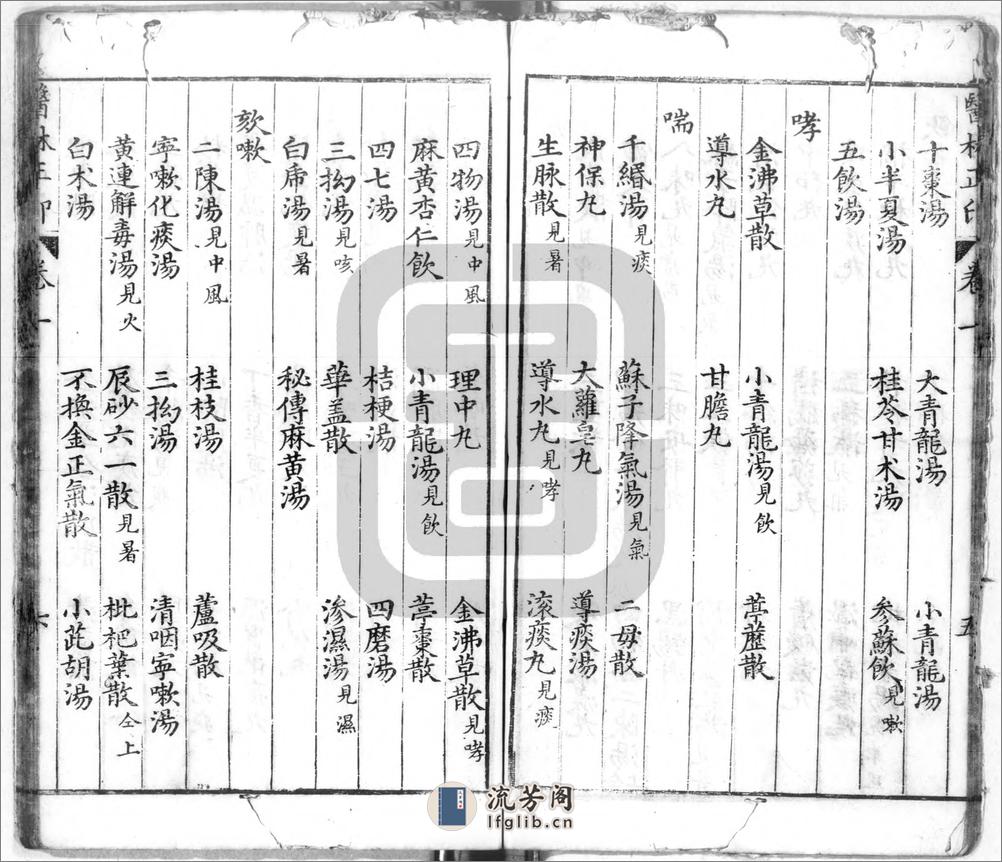 醫林正印 卷一 五
十棗湯 大青龍湯 小青龍湯
小半夏湯 桂苓甘术湯 參蘇飲見嗽
五飲湯
哮
金沸草散 小青龍湯見飲 葶藶散
導水丸 甘膽丸
喘
千緡湯見痰 蘇子降氣湯見氣 二母散
神保丸 大蘿皂丸 導痰湯
生脉散見暑 導水丸見哮 滚痰丸見痰
四物湯見中風 理中丸 金沸草散見哮
麻黃杏仁飲 小青龍湯見飲 葶棗散
四七湯 桔梗湯 四磨湯
三拗湯見咳 華盖散 滲濕湯見濕
白虎湯見暑 秘傳麻黃湯
欬嗽
二陳湯見中風 桂枝湯 蘆吸散
寧嗽化痰湯 三拗湯 清咽寧嗽湯
黃連解毒湯見火 辰砂六一散見暑 枇杷葉散仝上
白术湯 不換金正氣散 小茈胡湯
醫林正印 卷一
流芳阁
lfglib.cn